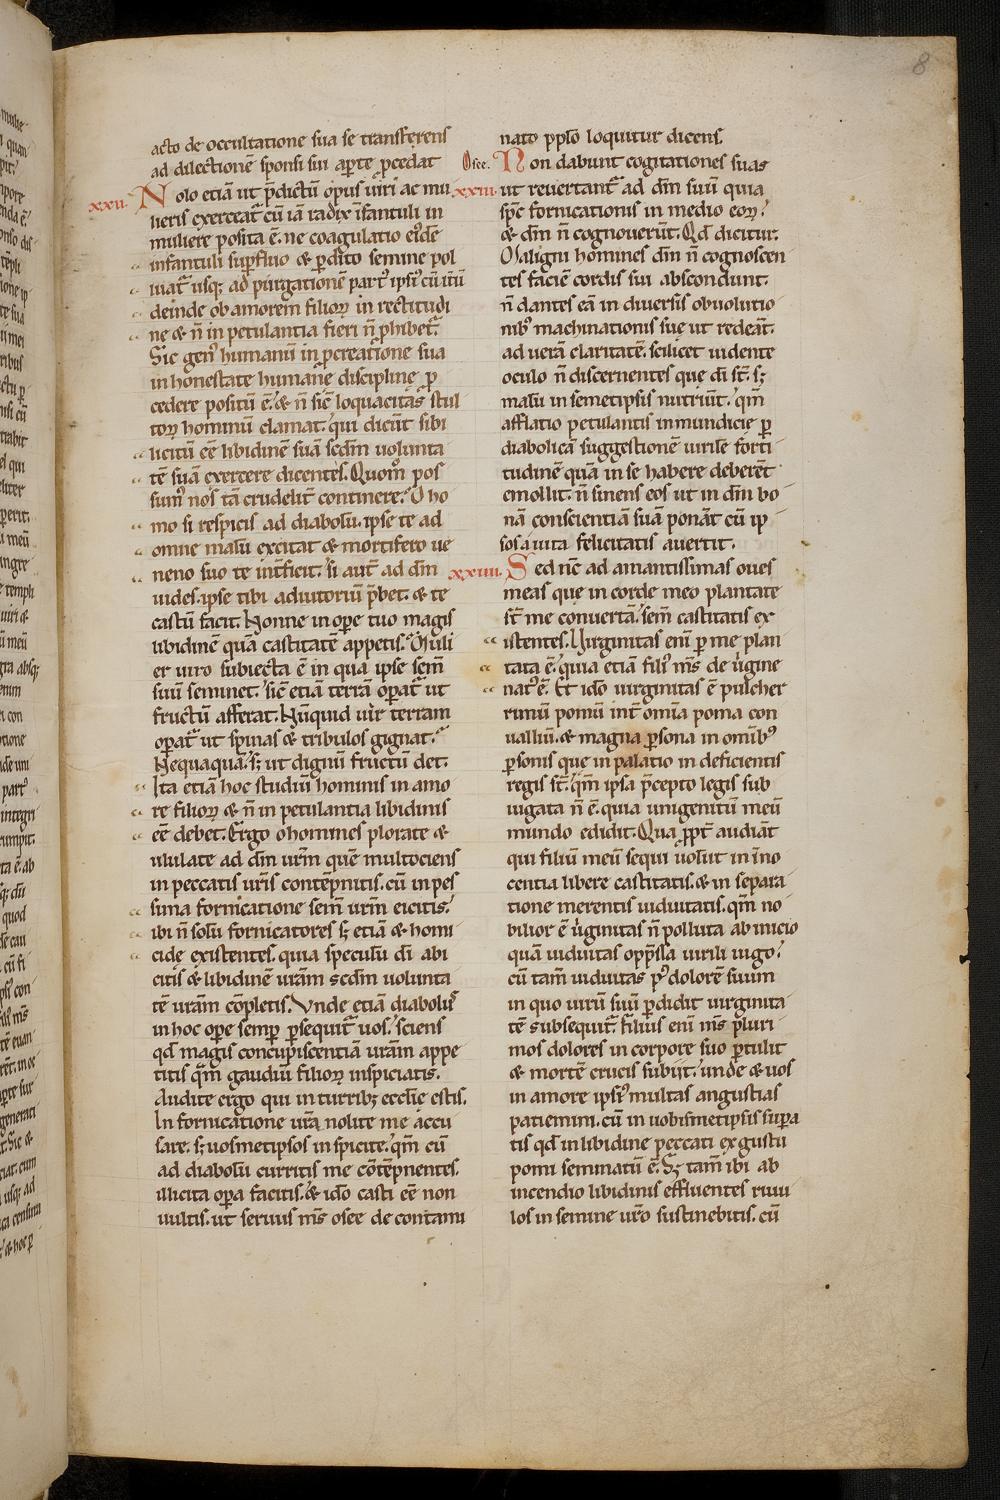 8
acto de occultatione sua se transferens
ad dilectionē sponsi sui apte p̄cedat
xxii. Nolo etiā ut p̄dictū opus uiri ac mu
lieris exerceat̄ cū iā radix īfantuli in
muliere posita ē. ne coagulatio eidē
infantuli sup̄fluo & p̄dito semine pol
luat̄ usq; ad purgationē part᾿ ipsi᾿. cū ītū
deinde ob amorem filioꝝ in rectitudi
ne & n̄ in petulantia fieri n̄ phibet᾿.
Sic gen᾿ humanū in pcreatione sua
in honestate humanę disciplinę p
cedere positū ē. & n̄ sic̄ loquacitas stul
toꝝ hominū clamat. qui dicūt sibi
licitū eē libidinē suā scdm uolunta
tē suā exercere dicentes. Quom̊ pos
sum᾿ nos tā crudelit̄ continere? O ho
mo si respicis ad diabolū. ipse te ad
omne malū excitat & mortifero ue
neno suo te int̄ficit. si aut̄ ad dm̄
uides. ipse tibi adiutoriū p̄bet. & te
castū facit. Nonne in ope tuo magis
libidinē quā castitatē appetis? Muli
er uiro subiecta ē in qua ipse sem̄
suū seminet. sic̄ etiā terrā opat̄ ut
fructū afferat. Nūquid uir terram
opat̄ ut spinas & tribulos gignat?
Nequaquā. s; ut dignū fructū det.
Ita etiā hoc studiū hominis in amo
re filioꝝ & n̄ in petulantia libidinis
eē debet. Ergo o homines plorate &
ululate ad dm̄ urm̄ quē multociens
in peccatis uris contēpnitis. cū in pes
sima fornicatione sem̄ urm̄ eicitis.
ibi n̄ solū fornicatores s; etiā & homi
cidę existentes. quia speculū di abi
citis & libidinē urām scdm uolunta
tē urām cōpletis. Vnde etiā diabolus
in hoc ope semp psequit̄ uos. sciens
qd magis concupiscentiā urām appe
titis q̄m gaudiū filioꝝ inspiciatis.
Audite ergo qui in turrib; ecclię estis.
In fornicatione ura nolite me accu
sare. s; uosmetipsos inspicite. qm̄ cū
ad diabolū curritis me cōtēpnentes.
illicita opa facitis. & idō casti eē non
uultis. ut seruus ms̄ osee de contami
nato pplō loquitur dicens.
Osee. Non dabunt cogitationes suas
xxiii. ut reuertant̄ ad dm̄ suū quia
spc̄ fornicationis in medio eoꝝ.
& dm̄ n̄ cognouerūt. Qd dicitur.
Maligni homines dm̄ n̄ cognoscen
tes faciē cordis sui abscondunt.
n̄ dantes eā in diuersis obuolutio
nib᾿ machinationis suę ut redeāt.
ad uerā claritatē. scilicet uidente
oculo n̄ discernentes que di st̄. s;
malū in semetipsis nutriūt. qm̄
afflatio petulantis inmundicie p
diabolicā suggestionē uirilē forti
tudinē quā in se habere deberēt
emollit. n̄ sinens eos ut in dm̄ bo
nā conscientiā suā ponāt cū ip
sos a uita felicitatis auertit.
xxiiii. Sed nc̄ ad amantissimas oues
meas que in corde meo plantate
st̄ me conuertā. sem̄ castitatis ex
istentes. Virginitas eni p me plan
tata ē. quia etiā fili᾿ ms̄ de ūgine
nat᾿ ē. Et idō uirginitas ē pulcher
rimū pomū int̄ omīa poma con
ualliū. & magna psona in omīb᾿
psonis que in palatio indeficientis
regis st̄. qm̄ ipsa p̄cepto legis sub
iugata n̄ ē. quia unigenitū meū
mundo edidit. Qua ppt̄ audiāt
qui filiū meū sequi uolūt in īno
centia liberę castitatis. & in separa
tione merentis uiduitatis. qm̄ no
bilior ē ūginitas n̄ polluta ab inicio
quā uiduitas opp̄ssa uirili iugo.
cū tam̄ uiduitas p᾿ dolorē suum
in quo uirū suū pdidit uirginita
tē subsequit̄. Filius eni ms̄ pluri
mos dolores in corpore suo ptulit
& mortē crucis subiit. unde & uos
in amore ipsi᾿ multas angustias
patiemini. cū in uobismetipsis supa
tis qd in libidine peccati ex gustu
pomi seminatū ē. S; tam̄ ibi ab
incendio libidinis effluentes riuu
los in semine uro sustinebitis. cū